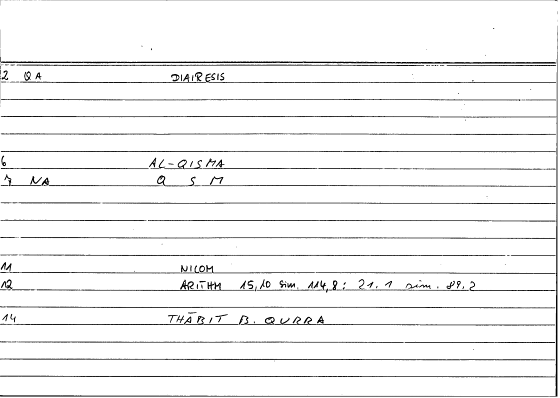 2 QA DIAIRESIS
6 AL-QISMA
7 NA Q S M
11 NICOM
12 ARITHM 15,10 sim. 114,8; 21.1 sim. 89.2
14 THĀBIT B. QURRA